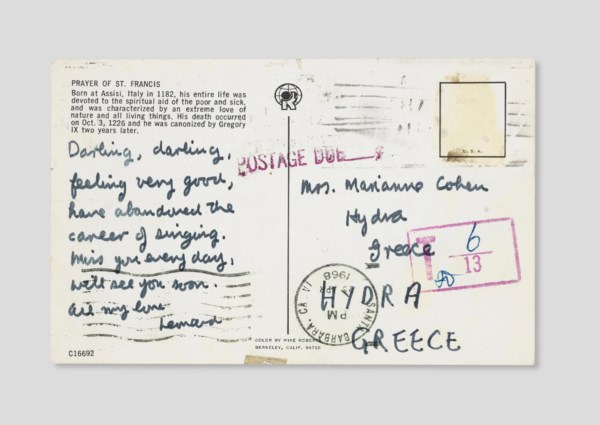 PRAYER OF ST. FRANCIS
Born at Assisi, Italy in 1182, his entire life was
devoted to the spiritual aid of the poor and sick,
and was characterized by an extreme love of
nature and all living things. His death occurred
on Oct. 3, 1226 and he was canonized by Gregory
IX two years later.
Darling, darling,
feeling very good,
have abandoned the
career of singing.
Miss you every day,
will see you soon.
All my love
Leonard
C16692
POSTAGE DUE
U.S.A.
Mrs. Marianne Cohen
Hydra
Greece
T 6
13
HYDRA
GREECE
SANTA BARBARA, CA
PM
1968
COLOR BY MIKE ROBERTS
BERKELEY, CALIF. 94710